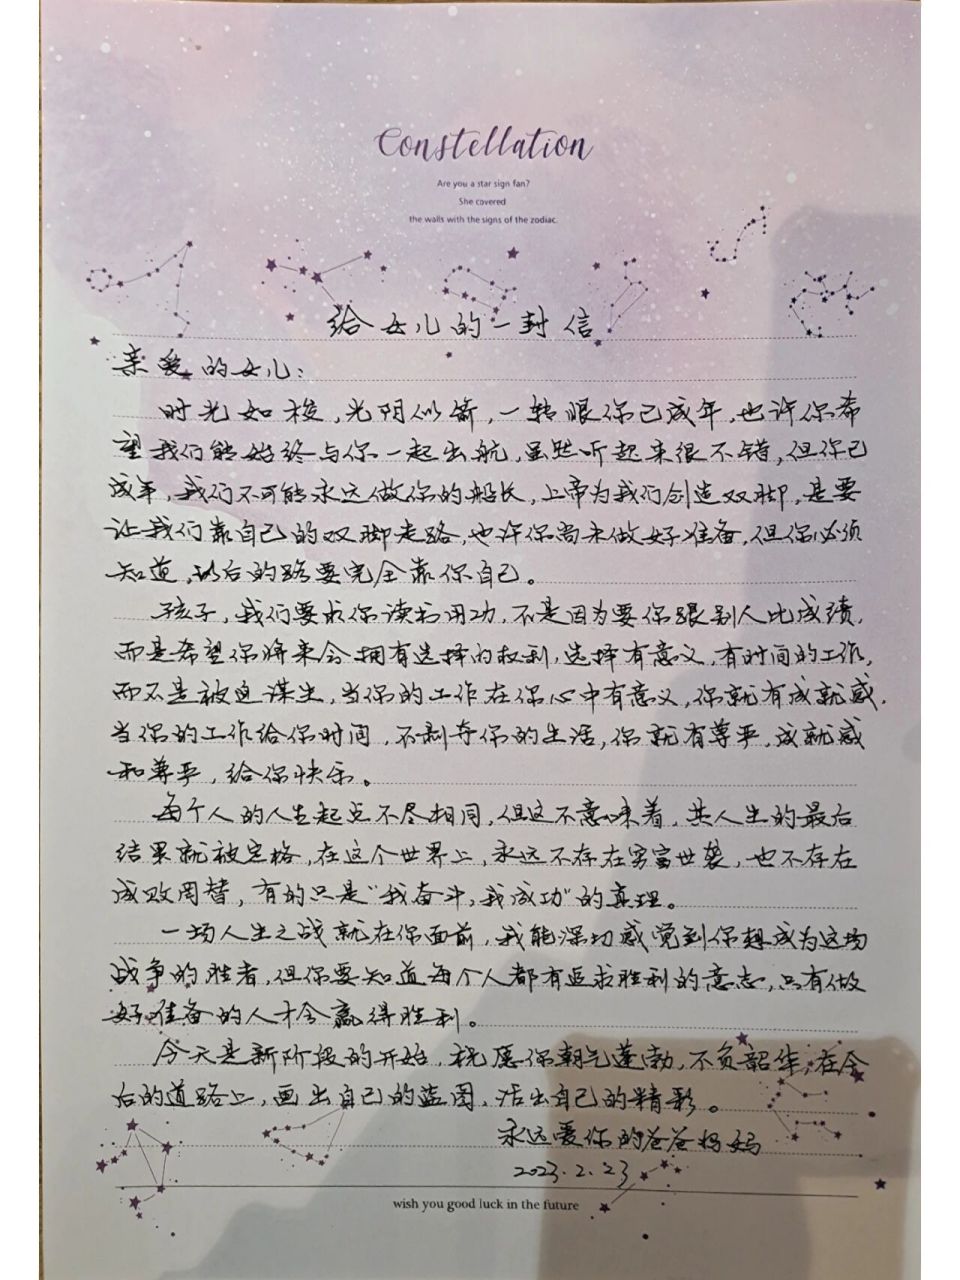 Constellation
Are you a star sign fan?
She covered
the walls with the signs of the zodiac.
给女儿的一封信
亲爱的女儿：
时光如梭，光阴似箭，一转眼你已成年，也许你希
望我们能始终与你一起出航，虽然听起来很不错，但你已
成年，我们不可能永远做你的船长，上帝为我们创造双脚，是要
让我们靠自己的双脚走路，也许你尚未做好准备，但你必须
知道，以后的路要完全靠你自己。
孩子，我们要求你读书用功，不是因为要你跟别人比成绩，
而是希望你将来会拥有选择的权利，选择有意义，有时间的工作，
而不是被迫谋生，当你的工作在你心中有意义，你就有成就感，
当你的工作给你时间，不剥夺你的生活，你就有尊严，成就感
和尊严，给你快乐。
每个人的人生起点不尽相同，但这不意味着，其人生的最后
结果就被定格，在这个世界上，永远不存在穷富世袭，也不存在
成败周替，有的只是“我奋斗，我成功”的真理。
一场人生之战就在你面前，我能深切感觉到你想成为这场
战争的胜者，但你要知道每个人都有追求胜利的意志，只有做
好准备的人才会赢得胜利。
今天是新阶段的开始，祝愿你朝气蓬勃，不负韶华，在今
后的道路上，画出自己的蓝图，活出自己的精彩。
永远爱你的爸爸妈妈
2023.2.23
wish you good luck in the future